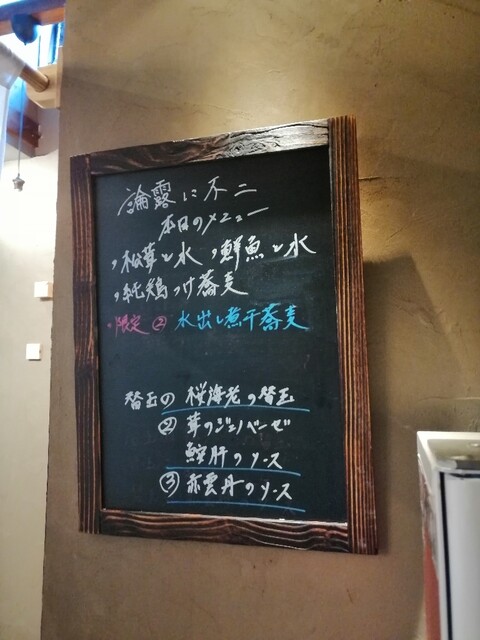 論露に不二
本日のメニュー
・松茸と水 ・鮮魚と水
・純鶏つけ蕎麦
・限定② 水出し煮干蕎麦
替玉の 桜海老の替玉
② 茸のジェノベーゼ
鮟肝のソース
③ 赤雲丹のソース